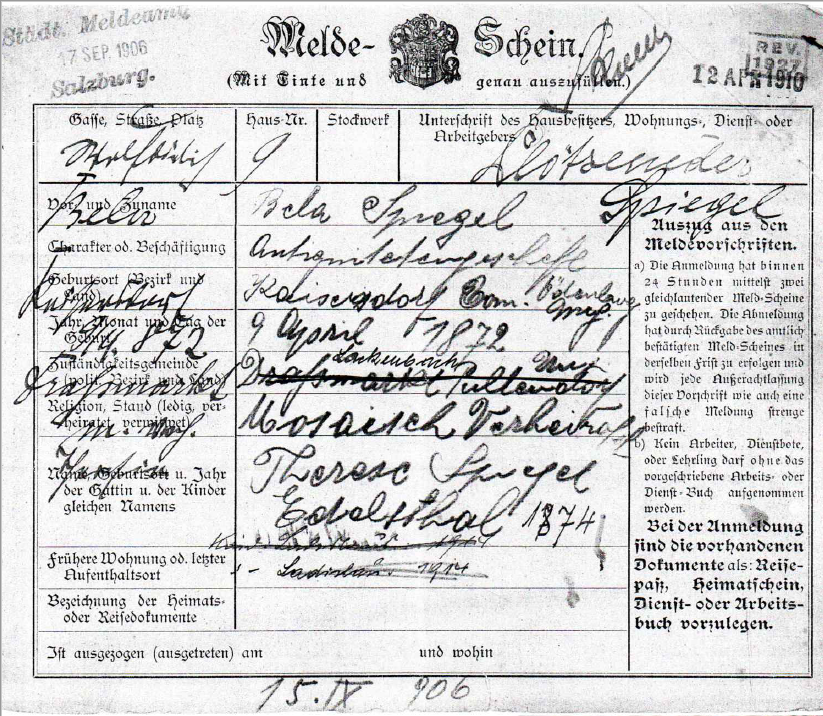 Städt. Meldeamt
17 SEP. 1906
Salzburg.
Melde-Schein.
(Mit Tinte und genau auszufüllen.)
REV.
1927
12 APR 1910
Gasse, Straße, Platz
Haus-Nr.
Stockwerk
Unterschrift des Hausbesitzers, Wohnungs-, Dienst- oder
Arbeitgebers
9
Vor- und Zuname
Bela
Bela Spiegel
Spiegel
Charakter od. Beschäftigung
Antiquitätengeschäft
Geburtsort (Bezirk und
Land)
Kaisersdorf Com.
Jahr, Monat und Tag der
Geburt
9 April 1872
9/4. 872
Zuständigkeitsgemeinde
(polit. Bezirk und Land)
Lackenbach Ung.
Drafsmarkt Pullendorf
Drafsmarkt
Religion, Stand (ledig, ver-
heiratet, verwitwet)
Mosaisch Verheirathet
Name, Geburtsort u. Jahr
der Gattin u. der Kinder
gleichen Namens
Therese Spiegel
Edelsthal 1874
1914
Frühere Wohnung od. letzter
Aufenthaltsort
Ladislaus 1914
Bezeichnung der Heimats-
oder Reisedokumente
Ist ausgezogen (ausgetreten) am
und wohin
15. IX 906
Auszug aus den
Meldevorschriften.
a) Die Anmeldung hat binnen
24 Stunden mittelst zwei
gleichlautender Meld-Scheine
zu geschehen. Die Abmeldung
hat durch Rückgabe des amtlich
bestätigten Meld-Scheines in
derselben Frist zu erfolgen und
wird jede Außerachtlassung
dieser Vorschrift wie auch eine
falsche Meldung strenge
bestraft.
b) Kein Arbeiter, Dienstbote,
oder Lehrling darf ohne das
vorgeschriebene Arbeits- oder
Dienst-Buch aufgenommen
werden.
Bei der Anmeldung
sind die vorhandenen
Dokumente als: Reise-
paß, Heimatschein,
Dienst- oder Arbeits-
buch vorzulegen.